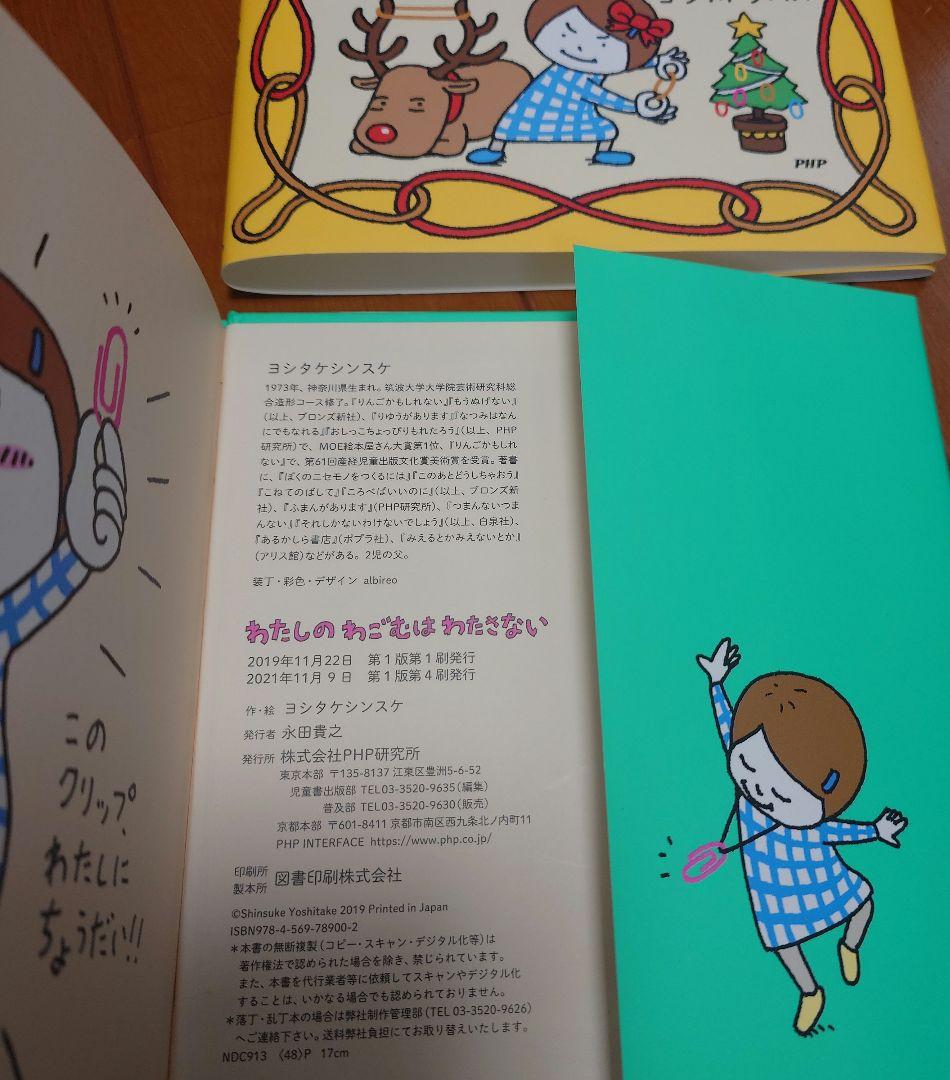 PHP
この
クリップ、
わたしに
ちょうだい!!
ヨシタケシンスケ
1973年、神奈川県生まれ。筑波大学大学院芸術研究科総
合造形コース修了。『りんごかもしれない』『もうぬげない』
(以上、ブロンズ新社)、『りゆうがあります』『なつみはなん
にでもなれる』『おしっこちょっぴりもれたろう』(以上、PHP
研究所)で、MOE絵本屋さん大賞第1位、『りんごかもしれ
ない』で、第61回産経児童出版文化賞美術賞を受賞。著書
に、『ぼくのニセモノをつくるには』『このあとどうしちゃおう』
『こねてのばして』『ころべばいいのに』(以上、ブロンズ新
社)、『ふまんがあります』(PHP研究所)、『つまんないつま
んない』『それしかないわけないでしょう』(以上、白泉社)、
『あるかしら書店』(ポプラ社)、『みえるとかみえないとか』
(アリス館)などがある。2児の父。
装丁・彩色・デザイン albireo
わたしのわごむはわたさない
2019年11月22日 第1版第1刷発行
2021年11月9日 第1版第4刷発行
作・絵 ヨシタケシンスケ
発行者 永田貴之
発行所 株式会社PHP研究所
東京本部 〒135-8137 江東区豊洲5-6-52
児童書出版部 TEL03-3520-9635(編集)
普及部 TEL03-3520-9630(販売)
京都本部 〒601-8411 京都市南区西九条北ノ内町11
PHP INTERFACE https://www.php.co.jp/
印刷所
製本所 図書印刷株式会社
©Shinsuke Yoshitake 2019 Printed in Japan
ISBN978-4-569-78900-2
*本書の無断複製(コピー・スキャン・デジタル化等)は
著作権法で認められた場合を除き、禁じられています。
また、本書を代行業者等に依頼してスキャンやデジタル化
することは、いかなる場合でも認められておりません。
*落丁・乱丁本の場合は弊社制作管理部(TEL 03-3520-9626)
へご連絡下さい。送料弊社負担にてお取り替えいたします。
NDC913 〈48〉P 17cm